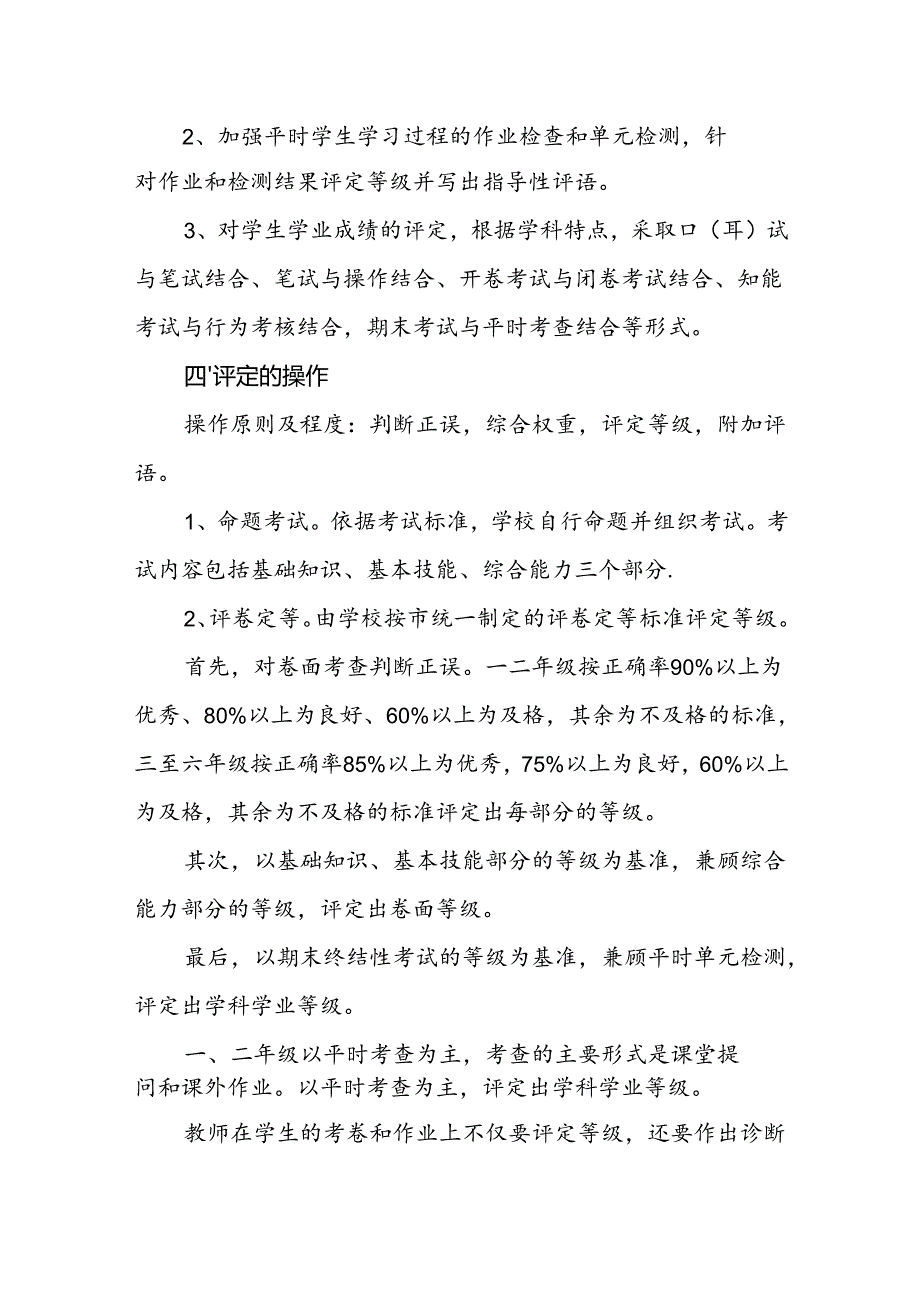 2、加强平时学生学习过程的作业检查和单元检测，针
对作业和检测结果评定等级并写出指导性评语。
3、对学生学业成绩的评定，根据学科特点，采取口（耳）试
与笔试结合、笔试与操作结合、开卷考试与闭卷考试结合、知能
考试与行为考核结合，期末考试与平时考查结合等形式。
四'评定的操作
操作原则及程度：判断正误，综合权重，评定等级，附加评
语。
1、命题考试。依据考试标准，学校自行命题并组织考试。考
试内容包括基础知识、基本技能、综合能力三个部分.
2、评卷定等。由学校按市统一制定的评卷定等标准评定等级。
首先，对卷面考查判断正误。一二年级按正确率90%以上为
优秀、80%以上为良好、60%以上为及格，其余为不及格的标准，
三至六年级按正确率85%以上为优秀，75%以上为良好，60%以上
为及格，其余为不及格的标准评定出每部分的等级。
其次，以基础知识、基本技能部分的等级为基准，兼顾综合
能力部分的等级，评定出卷面等级。
最后，以期末终结性考试的等级为基准，兼顾平时单元检测，
评定出学科学业等级。
一、二年级以平时考查为主，考查的主要形式是课堂提
问和课外作业。以平时考查为主，评定出学科学业等级。
教师在学生的考卷和作业上不仅要评定等级，还要作出诊断